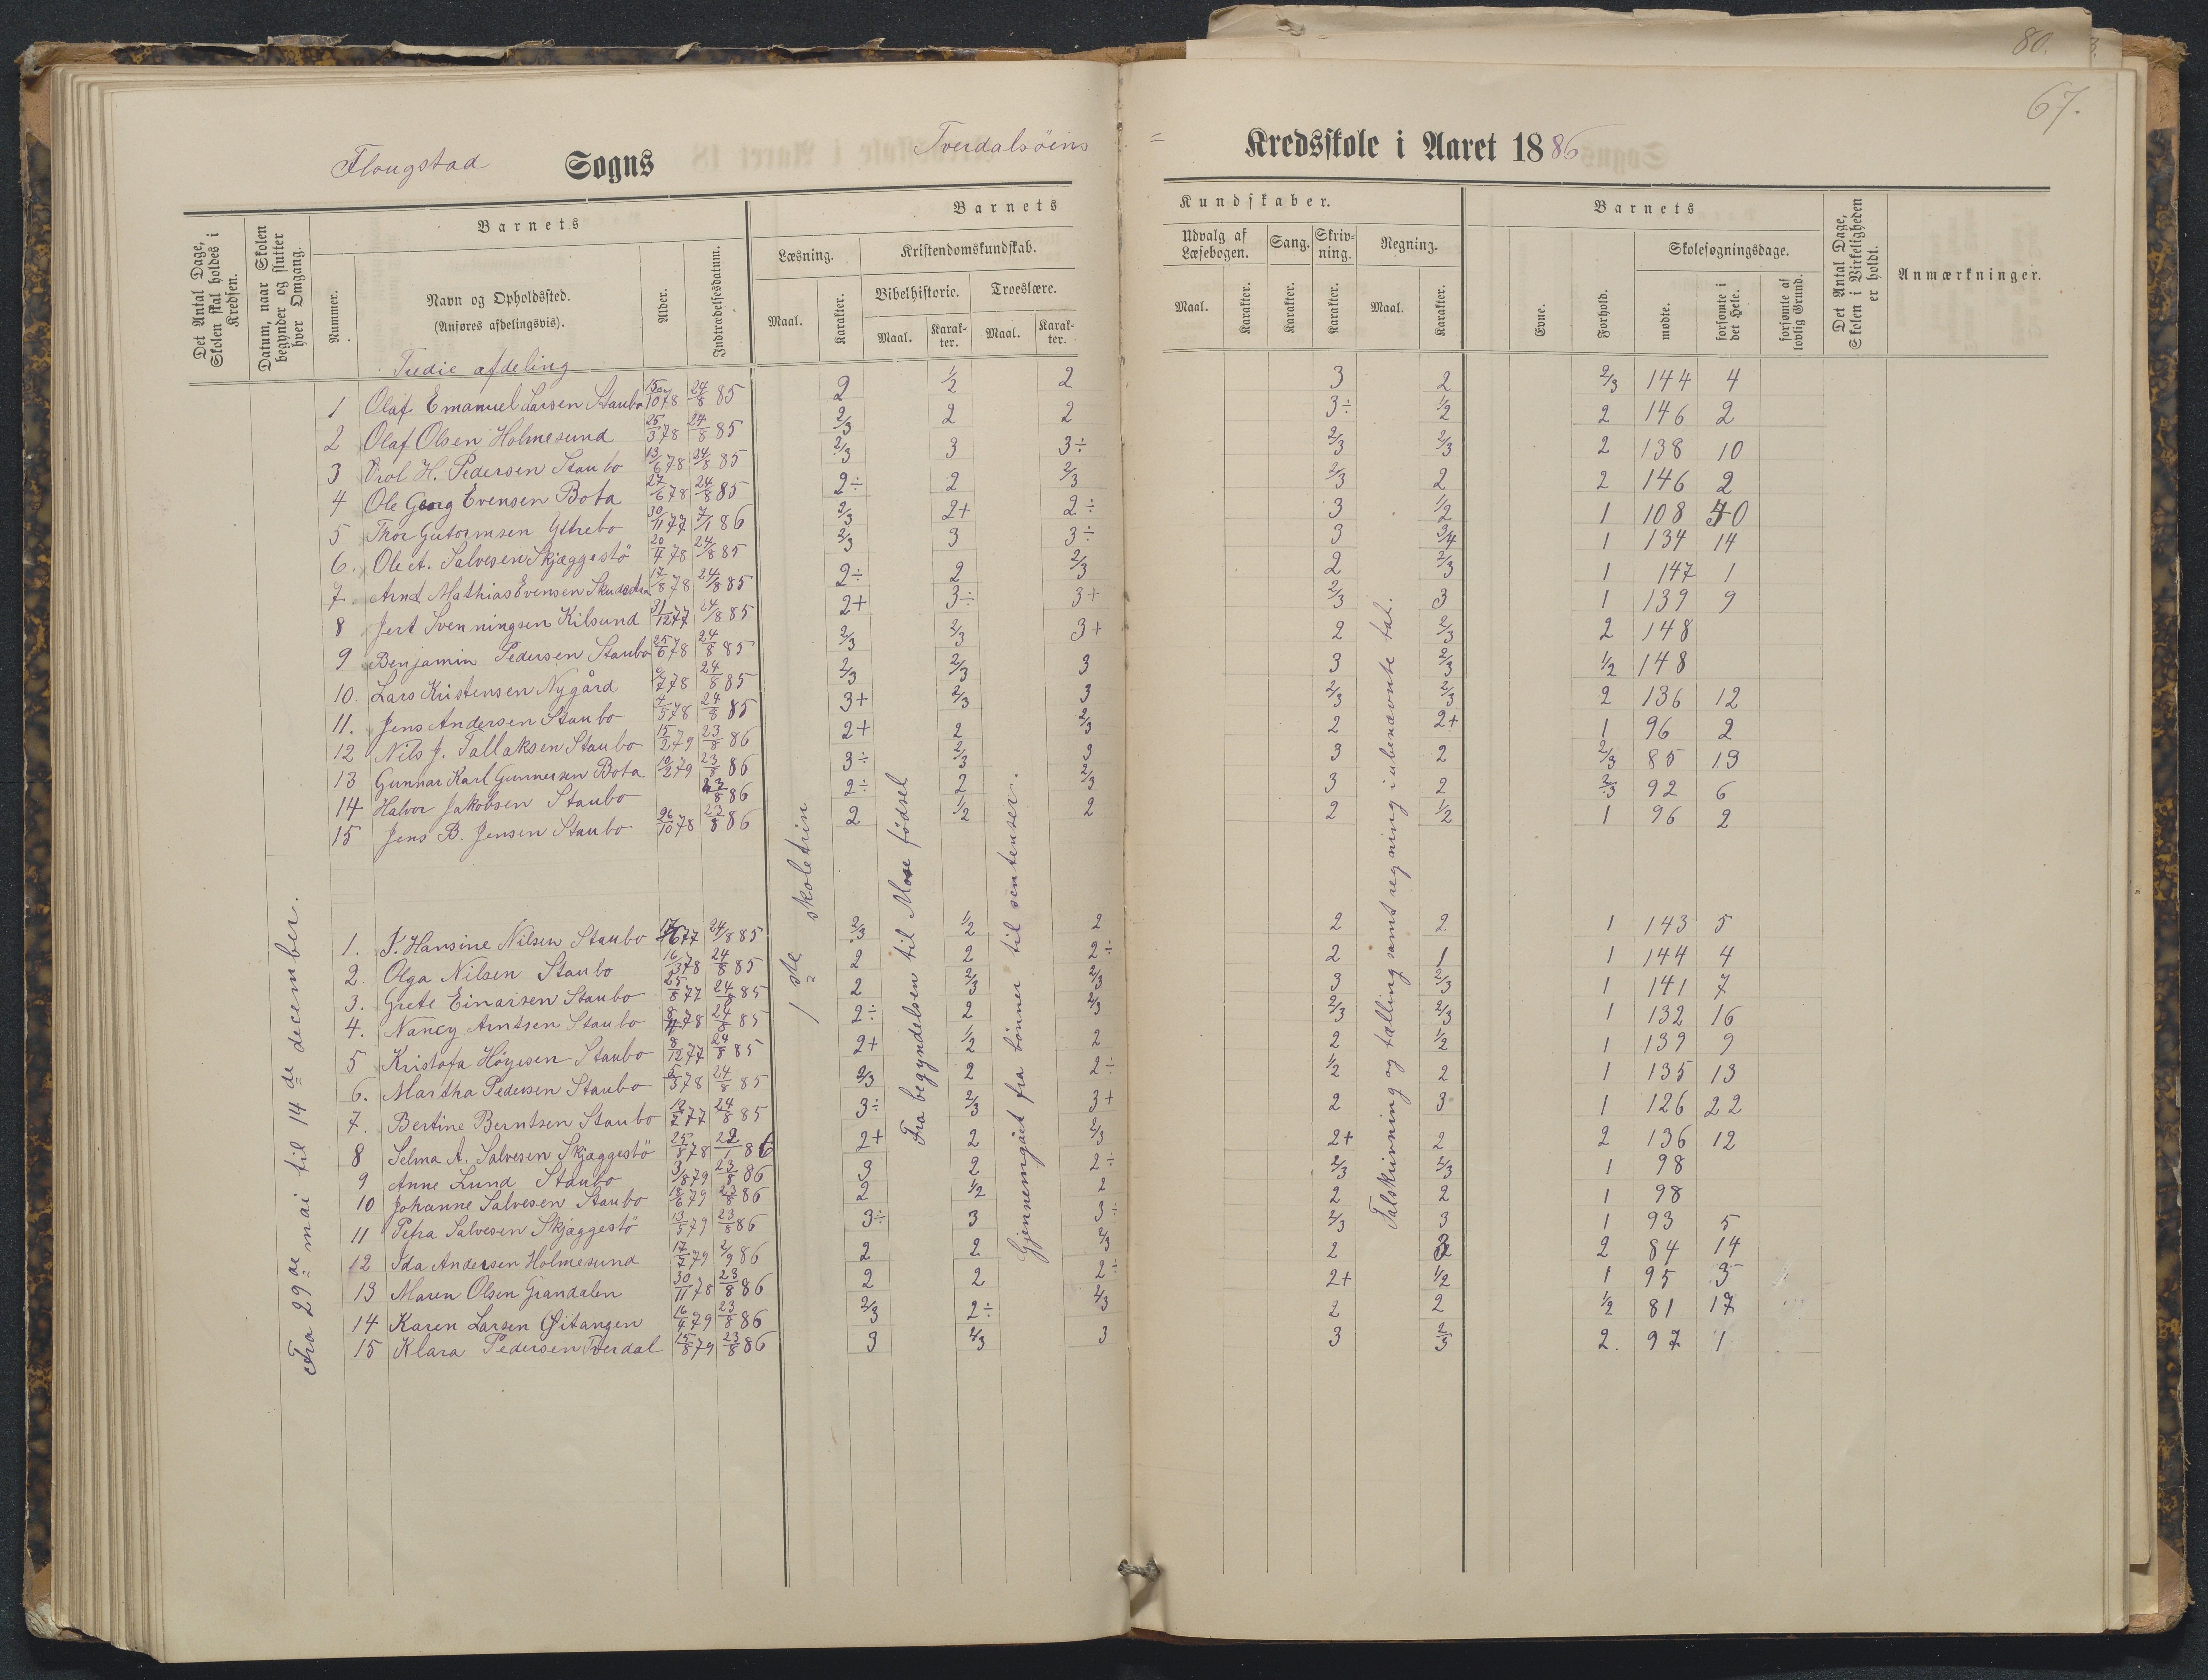 80.
67.
Flougstad Sogns Tverdalsöens = Kredsskole i Aaret 1886
Det Antal Dage, Skolen skal holdes i Kredsen.
Datum, maar Skolen begynder og slutter hver Omgang.
Barnets
Nummer.
Navn og Opholdssted.
(Anføres afdelingsvis).
Alder.
Indtrædelsesdatum.
Barnets Kundskaber.
Læsning.
Maal. Karakter.
Kristendomskundskab.
Bibelhistorie. Troeslære.
Maal. Karakter. Maal. Karakter.
Udvalg af Læsebogen.
Maal. Karakter.
Sang.
Karakter.
Skrivning.
Karakter.
Regning.
Maal. Karakter.
Barnets
Evne.
Forhold.
Skolesøgningsdage.
mødte.
forsømte i det Hele.
forsømte af lovlig Grund.
Det Antal Dage, Skolen i Virkeligheden er holdt.
Anmærkninger.
Tredie afdeling
1 Olaf Emanuel Larsen Staubo 15/10 78 24/8 85 2 1/2 2 3 2 2/3 144 4
2 Olaf Olsen Holmesund 25/3 78 24/8 85 2/3 2 2 3÷ 1/2 2 146 2
3 H. Pedersen Staubo 13/6 78 24/8 85 2/3 3 3÷ 2/3 2/3 2 138 10
4 Ole Georg Evensen Bota 27/6 78 24/8 85 2÷ 2 2/3 2/3 2 2 146 2
5 Thor Gutormsen Ytrebo 30/11 77 7/1 86 2/3 2+ 2÷ 3 1/2 1 108 40
6. Ole A. Salvesen Skjæggestö 20/4 78 24/8 85 2/3 3 3÷ 3 3/4 1 134 14
7. Arnt Mathias Evensen 17/8 78 24/8 85 2÷ 2 2/3 2 2/3 1 147 1
8 Jert Svenningsen Kilsund 31/12 77 24/8 85 2+ 3÷ 3+ 2/3 3 1 139 9
9 Benjamin Pedersen Staubo 25/6 78 24/8 85 2/3 2/3 3+ 2 2/3 2 148
10. Lars Kristensen Nygård 2/7 78 24/8 85 2/3 2/3 3 3 2/3 1/2 148
11. Jens Andersen Staubo 4/5 78 24/8 85 3+ 2/3 3 2/3 2/3 2 136 12
12 Nils J. Tallaksen Staubo 15/2 79 23/8 86 2+ 2 2/3 2 2+ 1 96 2
13 Gunnar Karl Gunnersen Bota 10/2 79 23/8 86 3÷ 2/3 3 3 2 2/3 85 13
14 Halvor Jakobsen Staubo 23/8 86 2÷ 2 2/3 3 2 2/3 92 6
15 Jens B. Jensen Staubo 26/10 78 23/8 86 2 1/2 2 2 1/2 1 96 2
1. J. Hansine Nilsen Staubo 17/6 77 24/8 85 2/3 1/2 2 2 2 1 143 5
2. Olga Nilsen Staubo 16/3 78 24/8 85 2 2 2÷ 2 1 1 144 4
3. Grete Einarsen Staubo 25/8 77 24/8 85 2 2/3 2/3 3 2/3 1 141 7
4. Nancy Arntsen Staubo 8/4 78 24/8 85 2÷ 2 2/3 2/3 2/3 1 132 16
5 Kristofa Höyesen Staubo 8/12 77 24/8 85 2+ 1/2 2 2 1/2 1 139 9
6. Martha Pedersen Staubo 5/3 78 24/8 85 2/3 2 2÷ 1/2 2 1 135 13
7. Bertine Berntsen Staubo 12/7 77 24/8 85 3÷ 2/3 3+ 2 3 1 126 22
8 Selma A. Salvesen Skjæggestö 25/8 78 22/1 86 2+ 2 2/3 2+ 2 2 136 12
9 Anne Lund Staubo 3/8 79 23/8 86 3 2 2÷ 2/3 2/3 1 98
10 Johanne Salvesen Staubo 18/6 79 23/8 86 2 1/2 2 2 2 1 98
11 Petra Salvesen Skjæggestö 13/5 79 23/8 86 3÷ 3 3÷ 2/3 3 1 93 5
12 Ida Andersen Holmesund 17/7 79 2/9 86 2 2 2/3 2 2 2 84 14
13 Maren Olsen Grandalen 30/11 78 23/8 86 2 2 2÷ 2+ 1/2 1 95 3
14 Karen Larsen Öitangen 16/4 79 23/8 86 2/3 2÷ 2/3 2 2 1/2 81 17
15 Klara Pedersen Tverdal 15/8 79 23/8 86 3 2/3 3 3 2/3 2. 97 1
Fra 29de mai til 14de december.
1ste skoletrin
Fra begyndelsen til Mose födsel
Gjennemgået fra bönner til sentenser.
Talskrivning og tælling samt regning i ubenævnte tal.